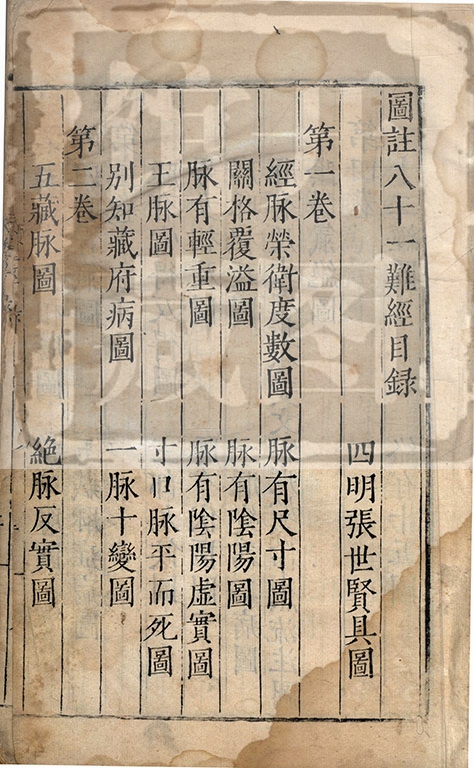 圖註八十一難經目録
四明張世賢具圖
第一卷
經脉榮衛度數圖　脉有尺寸圖
關格覆溢圖　脉有陰陽圖
脉有輕重圖　脉有陰陽虛實圖
王脉圖　寸口脉平而死圖
别知藏府病圖　一脉十變圖
第二卷
五藏脉圖　絶脉反實圖